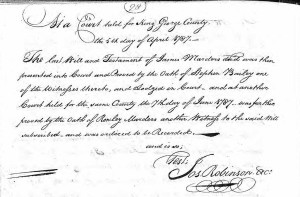 29
At a Court held for King George County
the 5th day of April 1787.
The last Will and Testament of James Marders Decd was then
presented into Court and Proved by the Oath of Stephen Bailey one
of the Witnesses thereto, and Lodged in Court, and at another
Court held for the same County the 7th day of June 1787. was further
proved by the Oath of Rowley Marders another Witness to the said Will
subscribed, and was ordered to be Recorded
and is so;
Test.
Jos Robinson